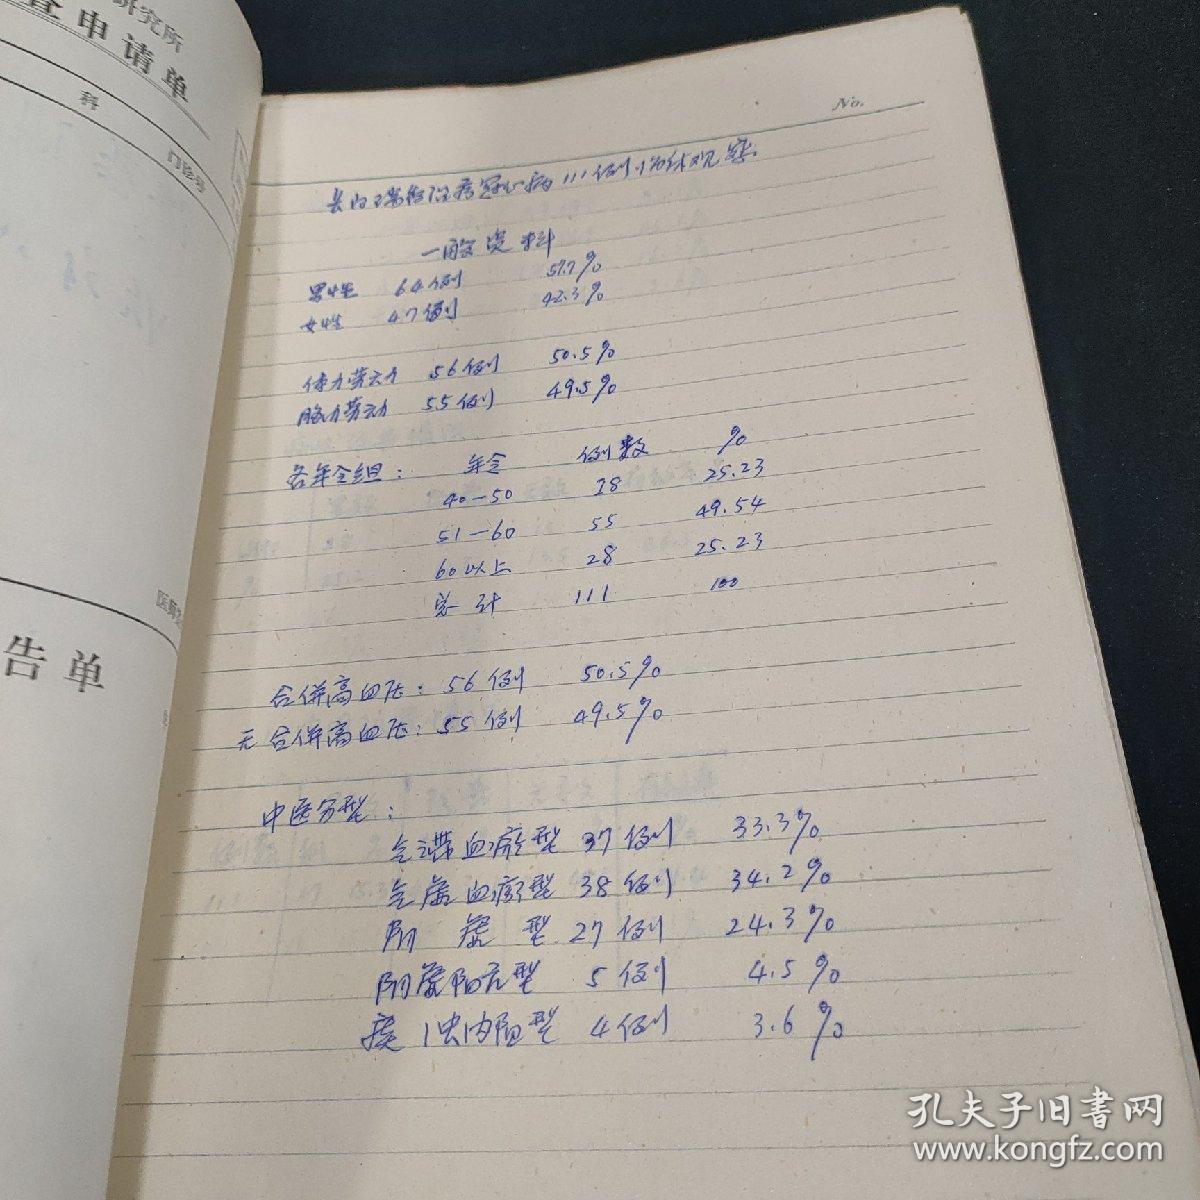 研究所
查申请单
科
门诊号
告单
No.
冠心病111例小结观察.
一般资料
男性 64例 57.7%
女性 47例 42.3%
体力劳动 56例 50.5%
脑力劳动 55例 49.5%
各年令组: 年令 例数 %
40—50 28 25.23
51—60 55 49.54
60以上 28 25.23
总计 111 100
合併高血压: 56例 50.5%
无合併高血压: 55例 49.5%
中医分型:
气滞血瘀型 37例 33.3%
气虚血瘀型 38例 34.2%
阴虚型 27例 24.3%
阴虚阳亢型 5例 4.5%
痰浊内阻型 4例 3.6%
孔夫子旧书网
www.kongfz.com